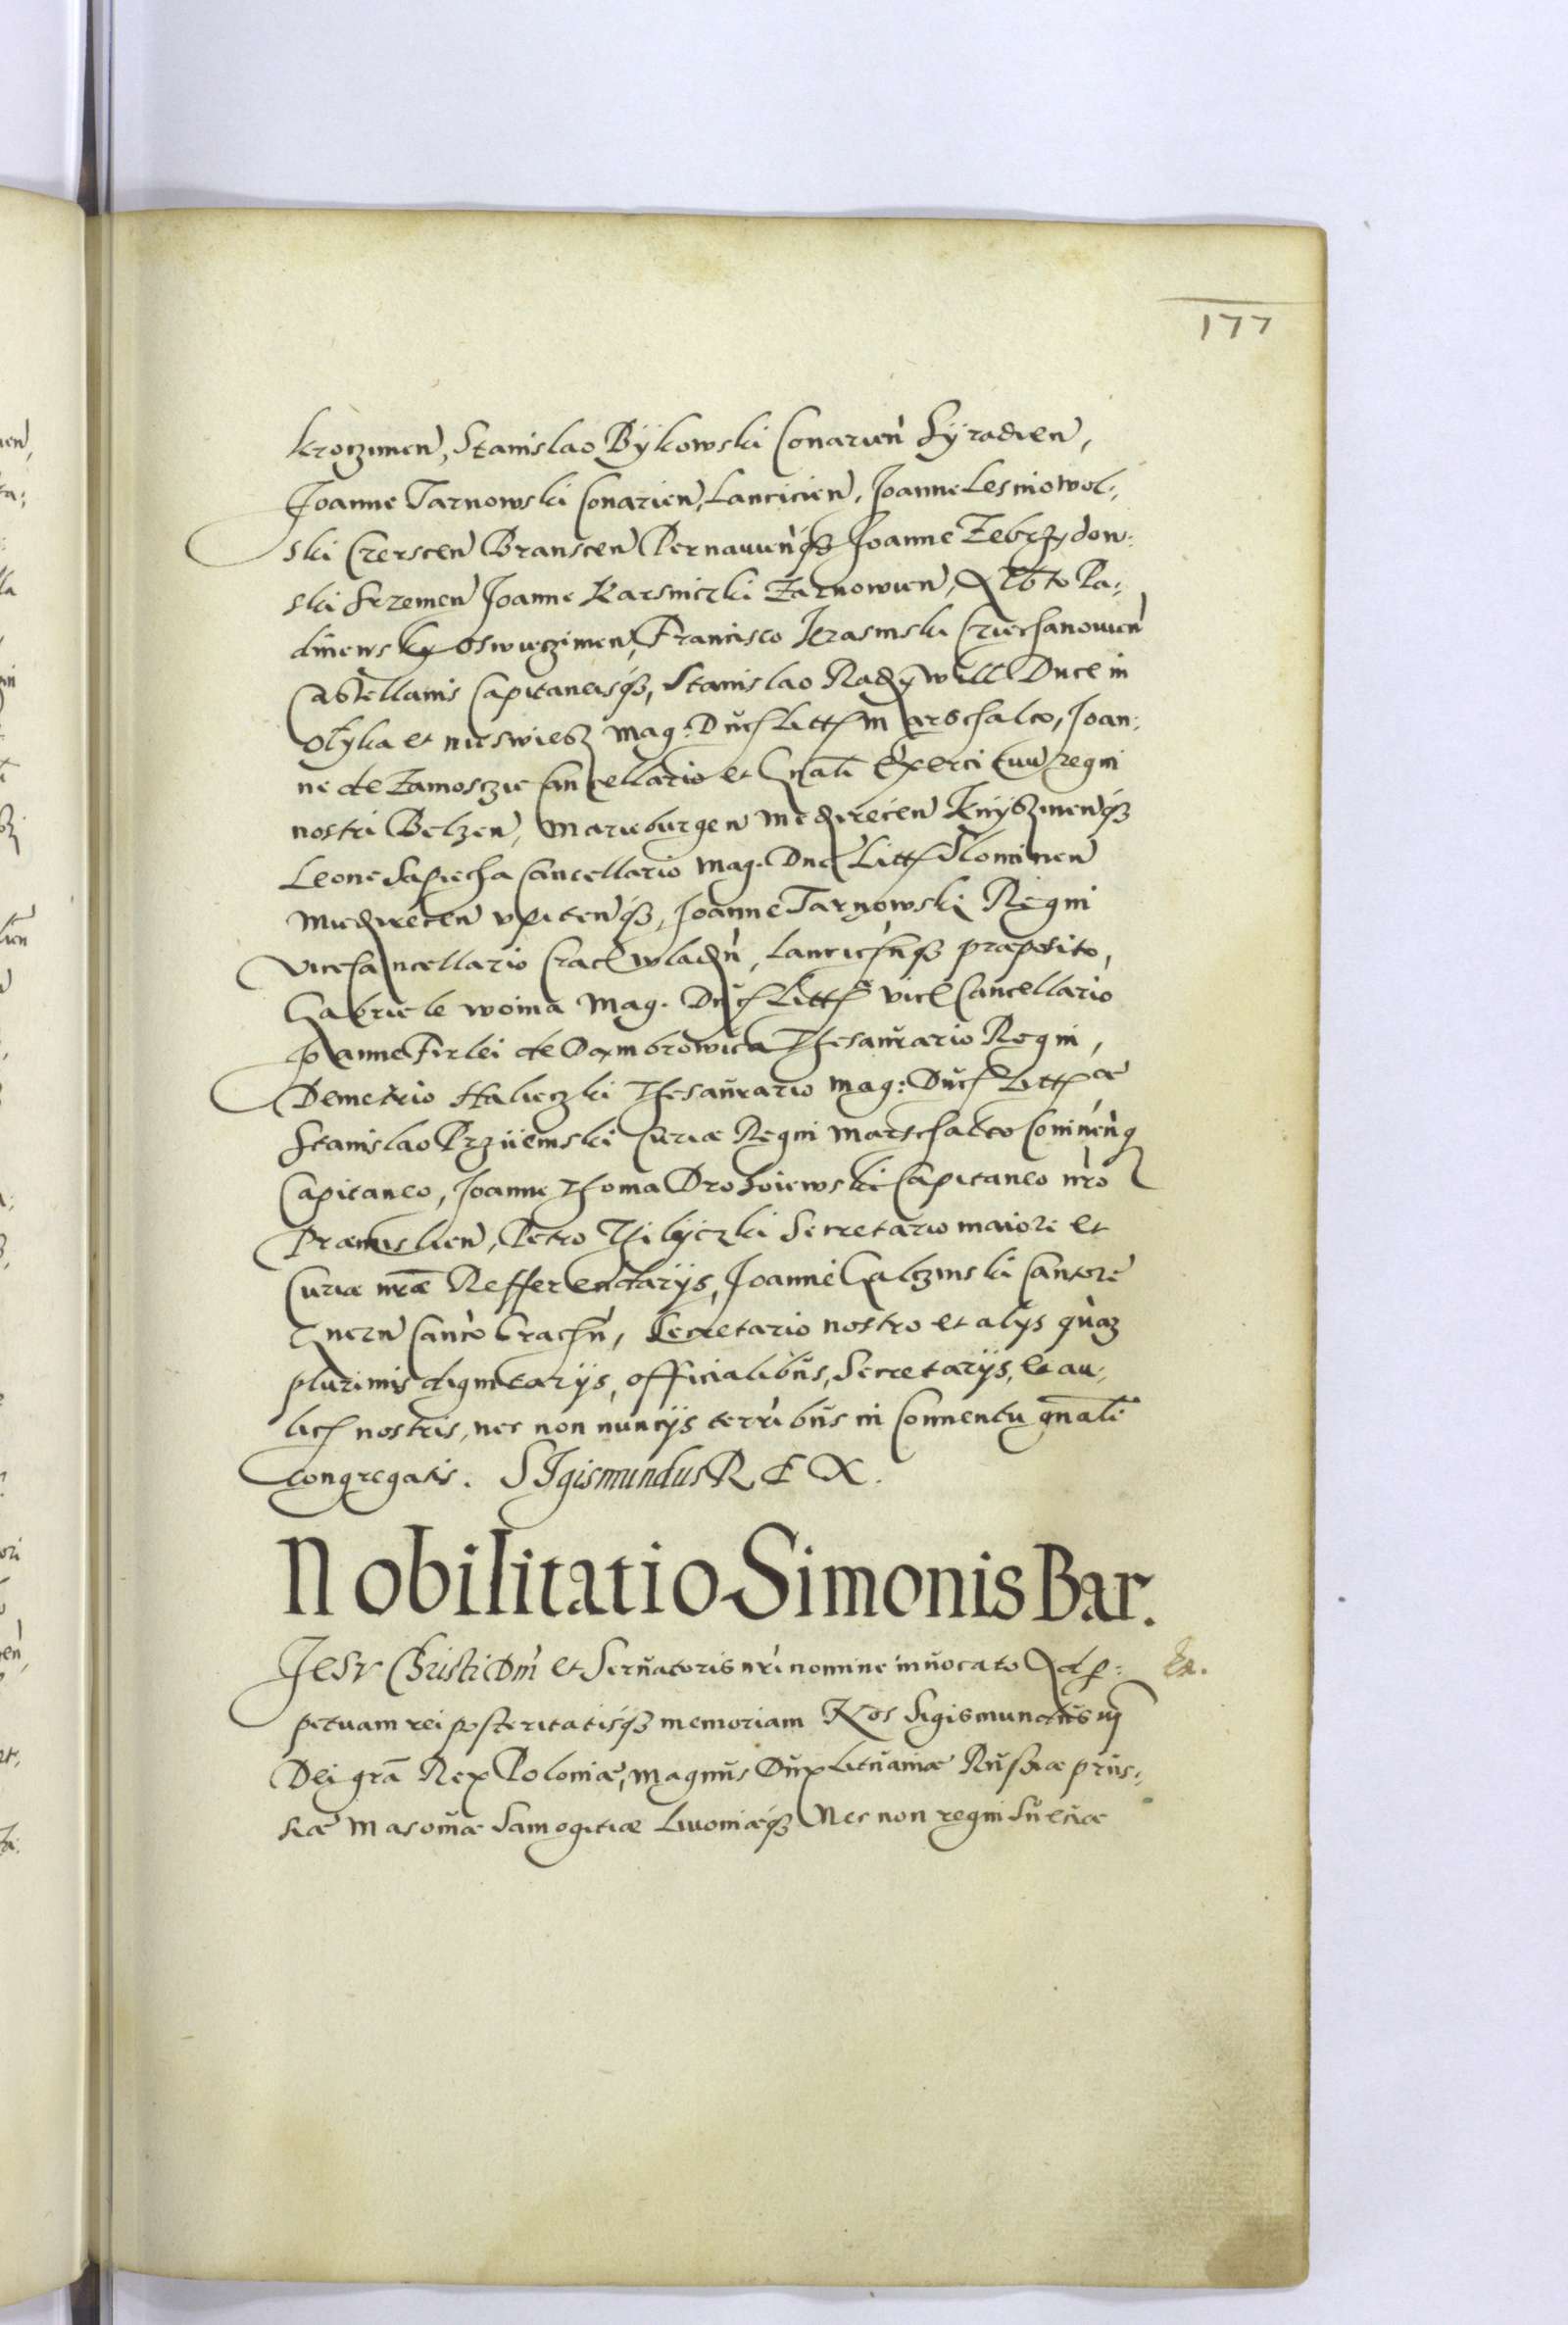 177
krozimen, Stanislao Bÿkowski Conarien Sÿradien,
Joanne Tarnowski Conarien, Lancicien, Joanne Lesniowol:
ski Czerscen Branscen Pernavienq3 Joanne Zebrzydow:
ski Srzemen Joanne Karsniczki Zarnowien,
dniewsky Oswieczimen, Francisco Krasinski Cziechanovien
Castellanis Capitaneisq3, Stanislao Radzywill Duce in
Olÿka et nieswiesz mag: Duc Litt marschalco, Joan:
ne de Zamoszie Cancellario et Gnali Exercituu regni
nostri Belzen, Marieburgen Medzirecen Knÿszinenq3
Leone Sapieha Cancellario mag. Duc Litt Slonimen
Miedzirecen upitenq3, Joanne Tarnowski Regni
Vicecancellario Crac wladn, Lancicnq3 præposito,
Gabriele woina Mag. Duc Litt Vice Cancellario
Joanne Firlei de Dambrowica Thesaurario Regni,
Demetrio Haliczki Thesaurario mag: Duc Littæ
Stanislao Przÿiemski Curiæ Regni Marschalco Coninenq
Capitaneo, Joanne Thoma Drohoiewski Capitaneo nro
Præmislien, Petro Tilÿczki Secretario maiore et
Curiæ nræ Refferendarijs, Joanne Galczinski Cantore
Gnezn Canco Cracn, Secretario nostro et alÿs quaz
plurimis dignitarijs, officialibus, Secretarijs, et au:
lic nostris, nec non nuncijs terribus in Conventu gnali
congregatis. SIgismundus REX.
Nobilitatio Simonis Bar.
Jesv Christi Dni et Servatoris nri nomine invocato Ad p:
petuam rei posteritatisq3 memoriam Nos Sigismundus iij
Dei gra Rex Poloniæ, magnus Dux Lituaniæ Russiæ prus:
siæ Masoviæ Samogitiæ Livoniæq3 Nec non regni Sueciæ